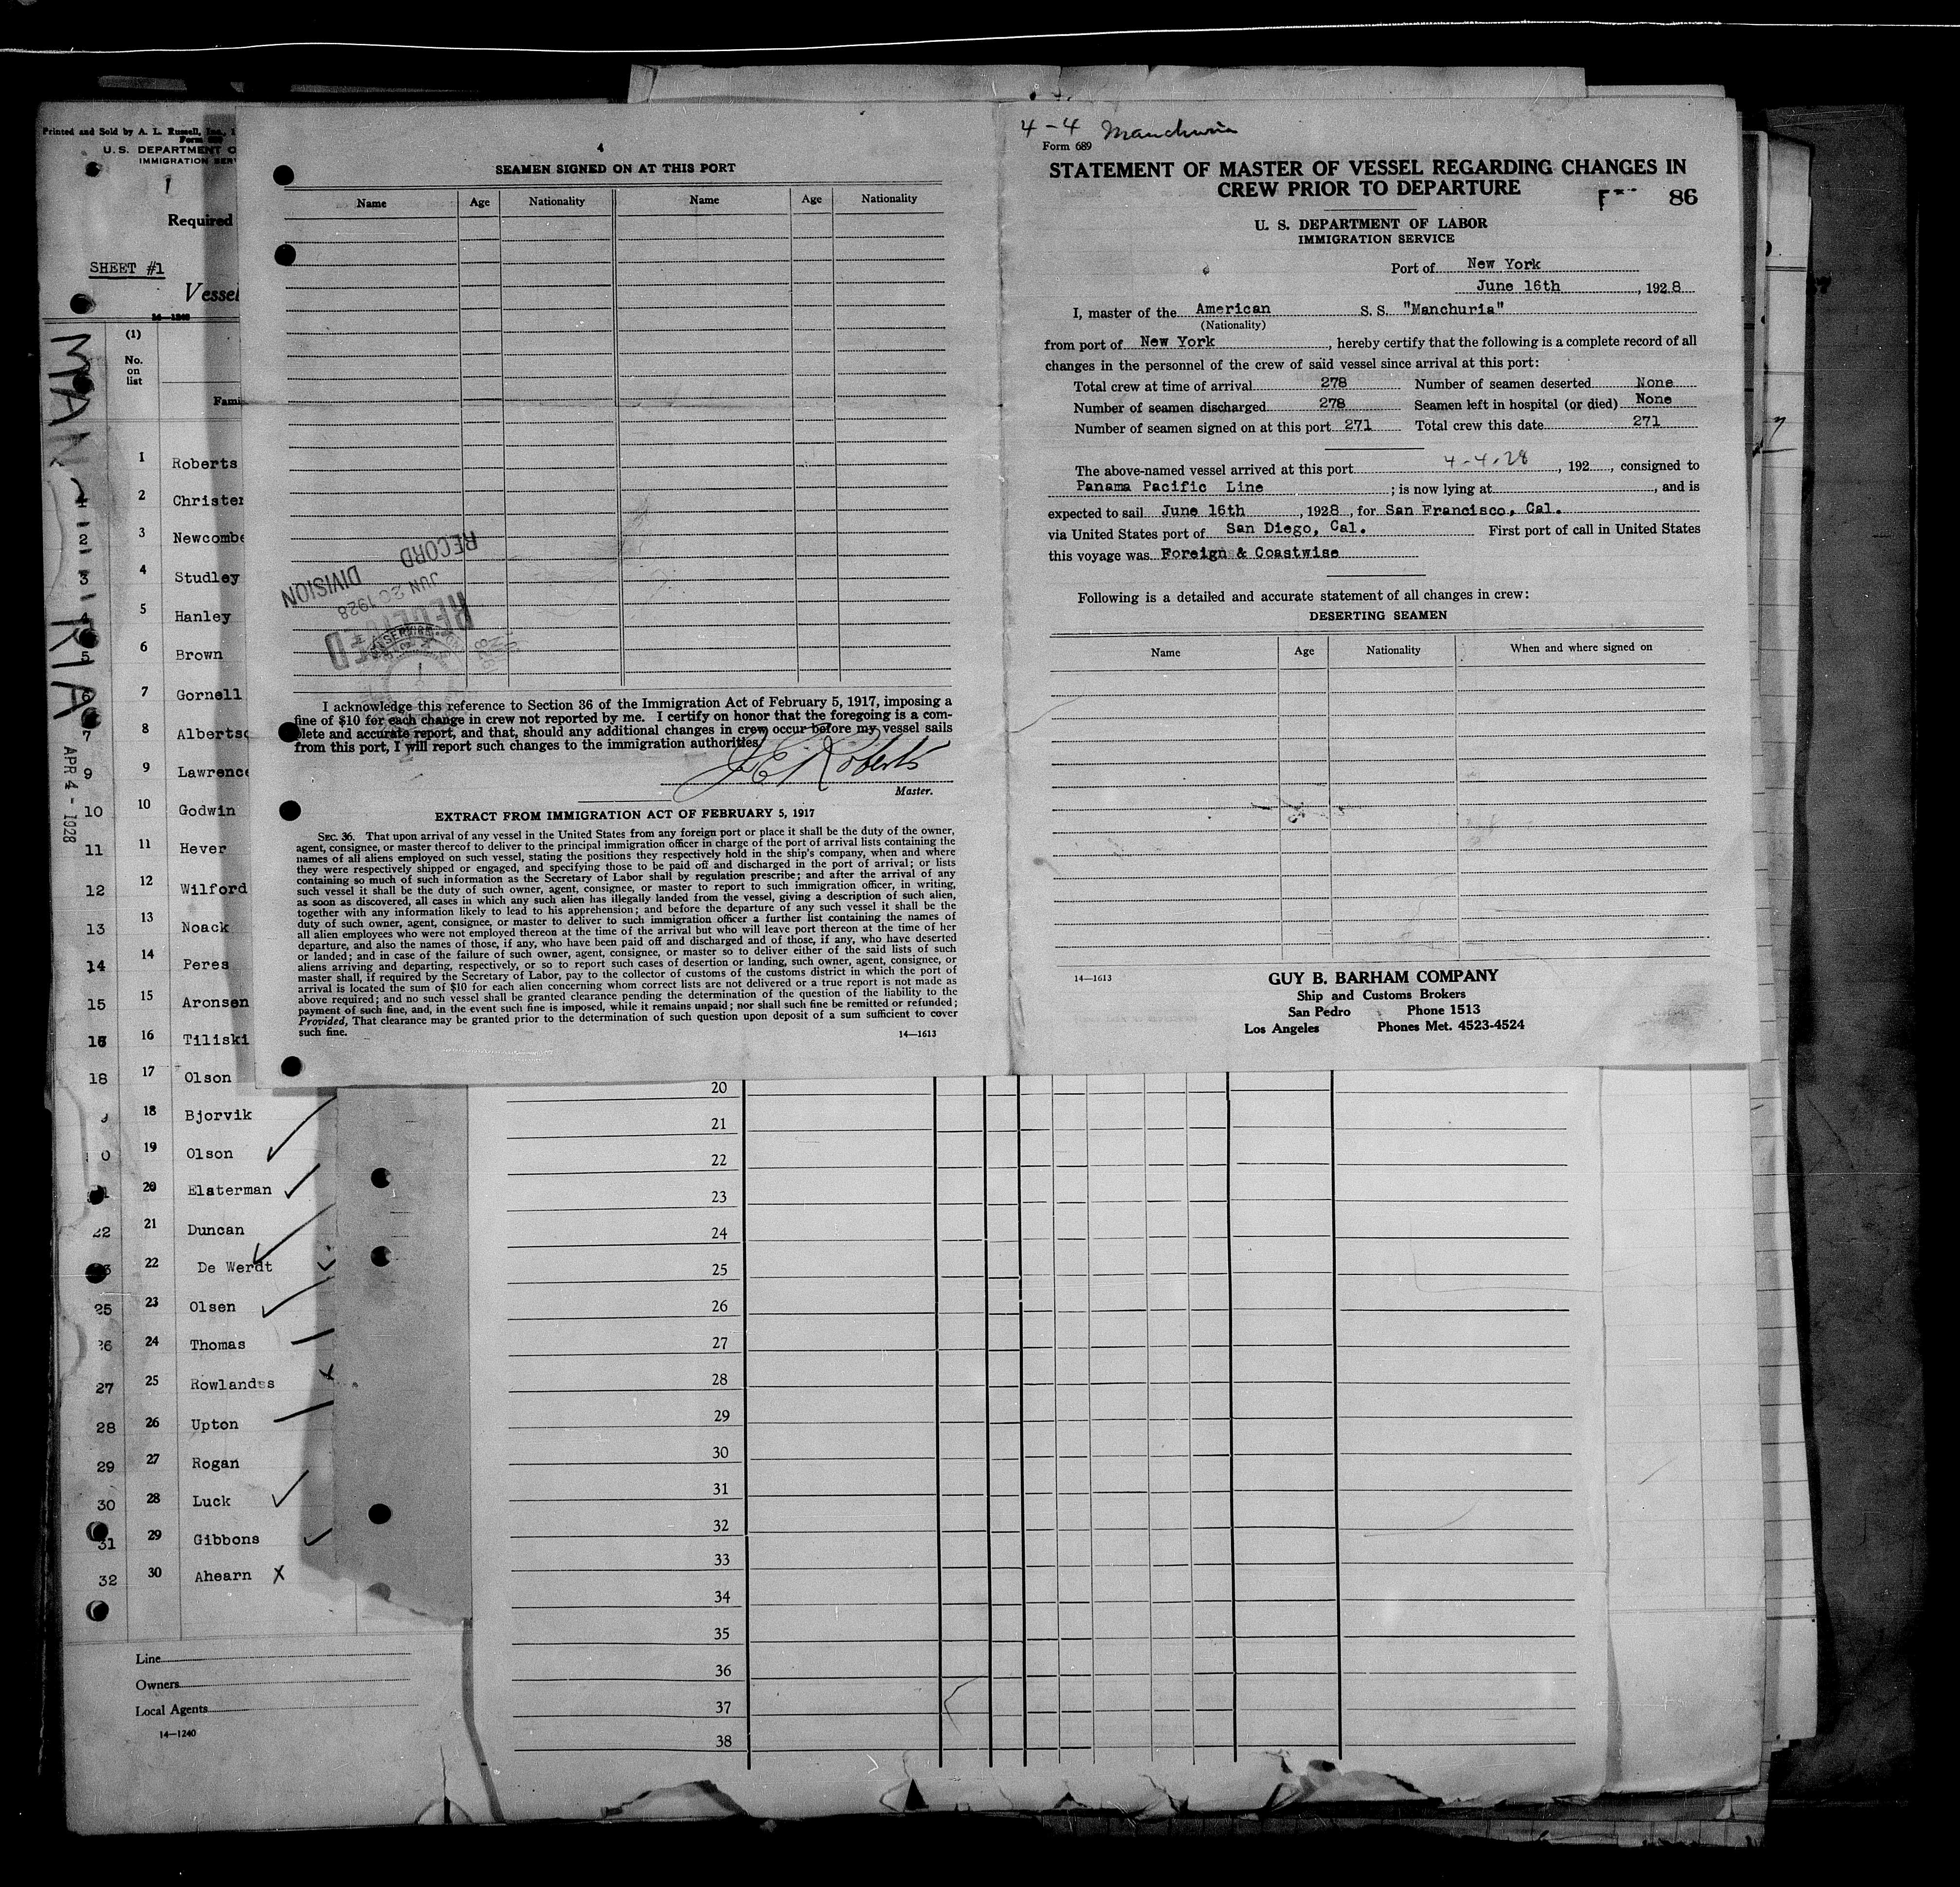 Printed and Sold by A. L. Russell, Inc., 1
Form
U. S. DEPARTMENT O
IMMIGRATION SERV
1
Required
SHEET #1
Vessel
(1)
No.
on
list
Fami
MAN
RIA
APR 4 - 1928
1 Roberts
2 Christen
3 Newcombe
4 Studley
5 Hanley
6 Brown
7 Gornell
8 Albertso
9 9 Lawrence
10 10 Godwin
11 11 Hever
12 12 Wilford
13 13 Noack
14 14 Peres
15 15 Aronsen
16 Tiliski
18 17 Olson
18 Bjorvik
19 Olson
20 Elsterman
21 Duncan
22 De Werdt
25 23 Olsen
24 Thomas
27 25 Rowlandss
28 26 Upton
29 27 Rogan
30 28 Luck
31 29 Gibbons
32 30 Ahearn X
Line
Owners
Local Agents
14—1240
4
SEAMEN SIGNED ON AT THIS PORT
Name Age Nationality Name Age Nationality
RECORD
DIVISION
JUN 20 1928
I acknowledge this reference to Section 36 of the Immigration Act of February 5, 1917, imposing a
fine of $10 for each change in crew not reported by me. I certify on honor that the foregoing is a com-
plete and accurate report, and that, should any additional changes in crew occur before my vessel sails
from this port, I will report such changes to the immigration authorities.
Roberts
Master.
EXTRACT FROM IMMIGRATION ACT OF FEBRUARY 5, 1917
SEC. 36. That upon arrival of any vessel in the United States from any foreign port or place it shall be the duty of the owner,
agent, consignee, or master thereof to deliver to the principal immigration officer in charge of the port of arrival lists containing the
names of all aliens employed on such vessel, stating the positions they respectively hold in the ship's company, when and where
they were respectively shipped or engaged, and specifying those to be paid off and discharged in the port of arrival; or lists
containing so much of such information as the Secretary of Labor shall by regulation prescribe; and after the arrival of any
such vessel it shall be the duty of such owner, agent, consignee, or master to report to such immigration officer, in writing,
as soon as discovered, all cases in which any such alien has illegally landed from the vessel, giving a description of such alien,
together with any information likely to lead to his apprehension; and before the departure of any such vessel it shall be the
duty of such owner, agent, consignee, or master to deliver to such immigration officer a further list containing the names of
all alien employees who were not employed thereon at the time of the arrival but who will leave port thereon at the time of her
departure, and also the names of those, if any, who have been paid off and discharged and of those, if any, who have deserted
or landed; and in case of the failure of such owner, agent, consignee, or master so to deliver either of the said lists of such
aliens arriving and departing, respectively, or so to report such cases of desertion or landing, such owner, agent, consignee, or
master shall, if required by the Secretary of Labor, pay to the collector of customs of the customs district in which the port of
arrival is located the sum of $10 for each alien concerning whom correct lists are not delivered or a true report is not made as
above required; and no such vessel shall be granted clearance pending the determination of the question of the liability to the
payment of such fine, and, in the event such fine is imposed, while it remains unpaid; nor shall such fine be remitted or refunded;
Provided, That clearance may be granted prior to the determination of such question upon deposit of a sum sufficient to cover
such fine.
14—1613
4-4 Manchuria
Form 689
STATEMENT OF MASTER OF VESSEL REGARDING CHANGES IN
CREW PRIOR TO DEPARTURE
86
U. S. DEPARTMENT OF LABOR
IMMIGRATION SERVICE
Port of New York
June 16th, 1928
I, master of the American S. S. "Manchuria"
(Nationality)
from port of New York, hereby certify that the following is a complete record of all
changes in the personnel of the crew of said vessel since arrival at this port:
Total crew at time of arrival 278 Number of seamen deserted None
Number of seamen discharged 278 Seamen left in hospital (or died) None
Number of seamen signed on at this port 271 Total crew this date 271
The above-named vessel arrived at this port 4-4-28, 192, consigned to
Panama Pacific Line; is now lying at, and is
expected to sail June 16th, 1928, for San Francisco, Cal.
via United States port of San Diego, Cal. First port of call in United States
this voyage was Foreign & Coastwise
Following is a detailed and accurate statement of all changes in crew:
DESERTING SEAMEN
Name Age Nationality When and where signed on
14—1613
GUY B. BARHAM COMPANY
Ship and Customs Brokers
San Pedro Phone 1513
Los Angeles Phones Met. 4523-4524
20
21
22
23
24
25
26
27
28
29
30
31
32
33
34
35
36
37
38